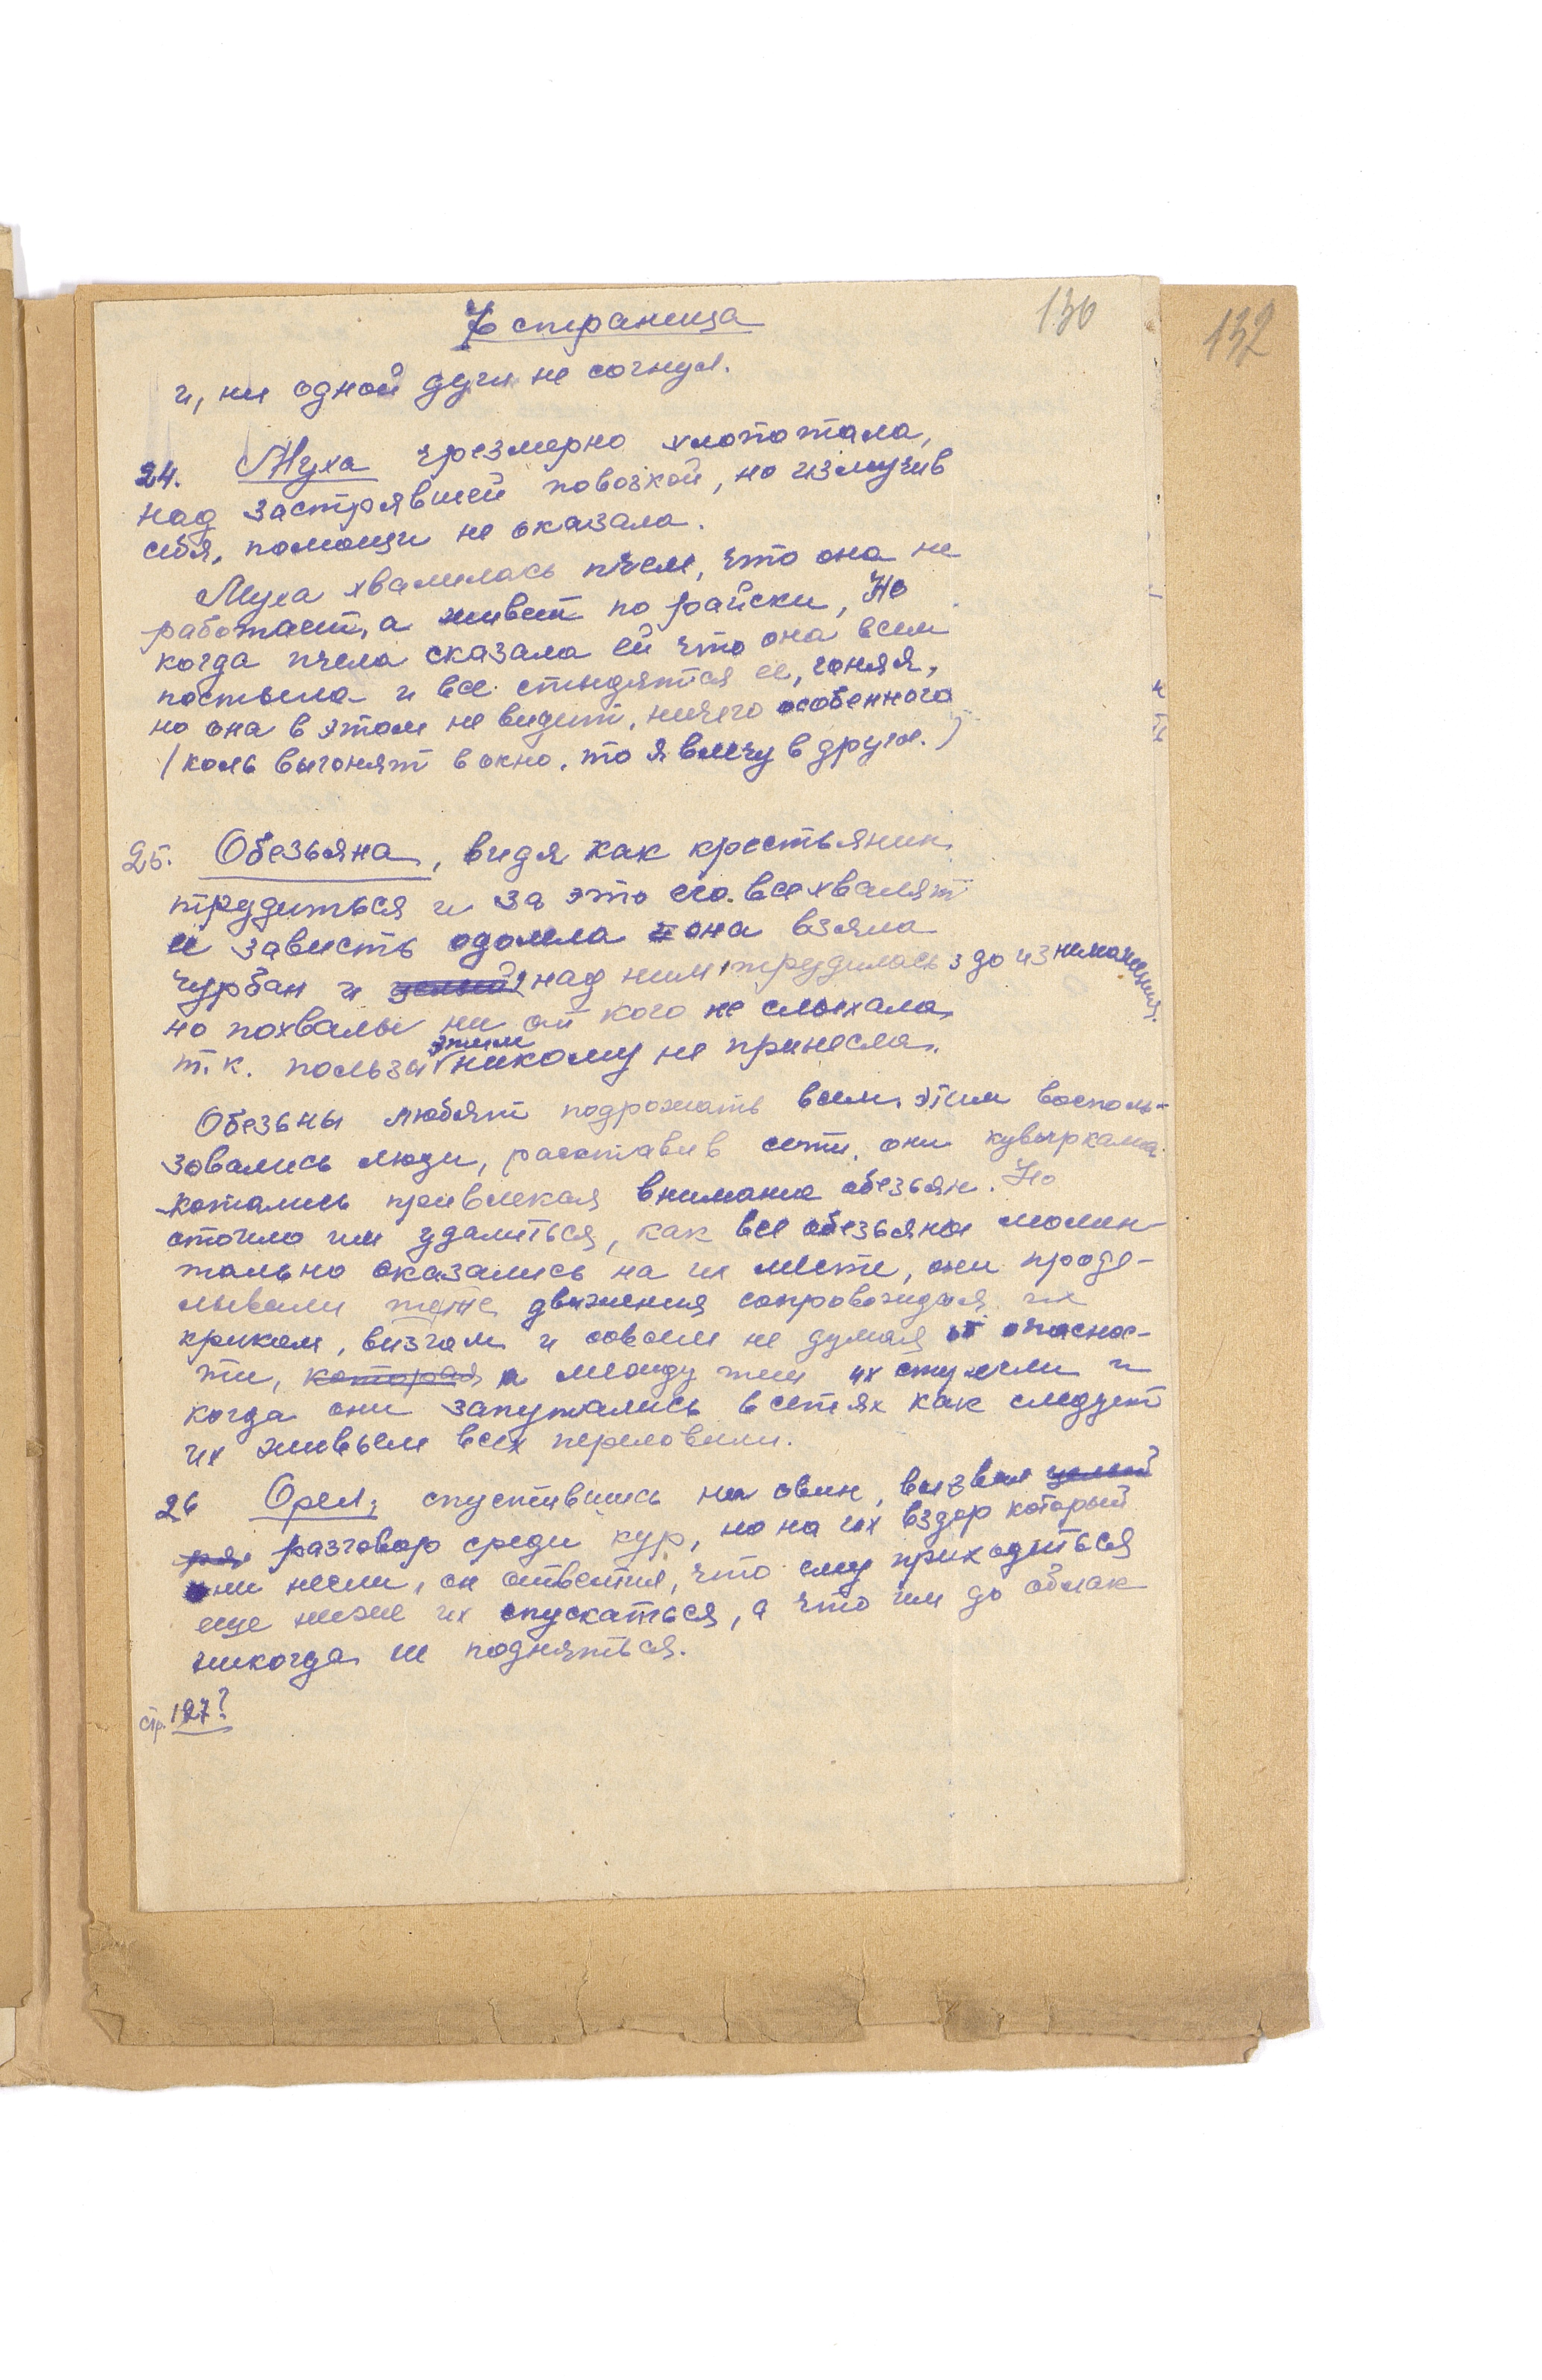 7 страница
130
132
и, ни одной дуги не согнул.
24. Муха чрезмерно хлопотала,
над застрявшей повозкой, но измучив
себя, помощи не оказала.
Муха хвалилась пчеле, что она не
работает, а живет по райски, Но
когда пчела сказала ей что она всем
постыла и все стыдятся ее, гоняя,
но она в этом не видит, ничего особенного
(коль выгонят в окно, то я влечу в другое.)
25. Обезьяна, видя как крестьянин
трудиться и за это его все хвалят
ей зависть одолела и она взяла
чурбан и над ним трудилась до изниможения.
но похвалы ни от кого не слыхала,
т.к. пользы этим никому не принесла.
Обезьны любят подрожать всем, этим восполь-
зовались люди, расставив сети, они кувырками
катались привлекая внимание обезьян. Но
стоило им удалиться, как все обезьяны момен-
тально оказались на их месте, они проде-
лывали теже движения сопровождая их
криком, визгом и совсем не думая о опаснос-
ти, которая а между тем их стерегли и
когда они запутались в сетях как следует
их живьем всех переловили.
26 Орел, спустившись на овин, вызвал целый
разговор среди кур, но на их вздор который
они несли, он ответил, что ему приходиться
еще ниже их спускаться, а что им до облак
никогда не подняться.
стр. 127?